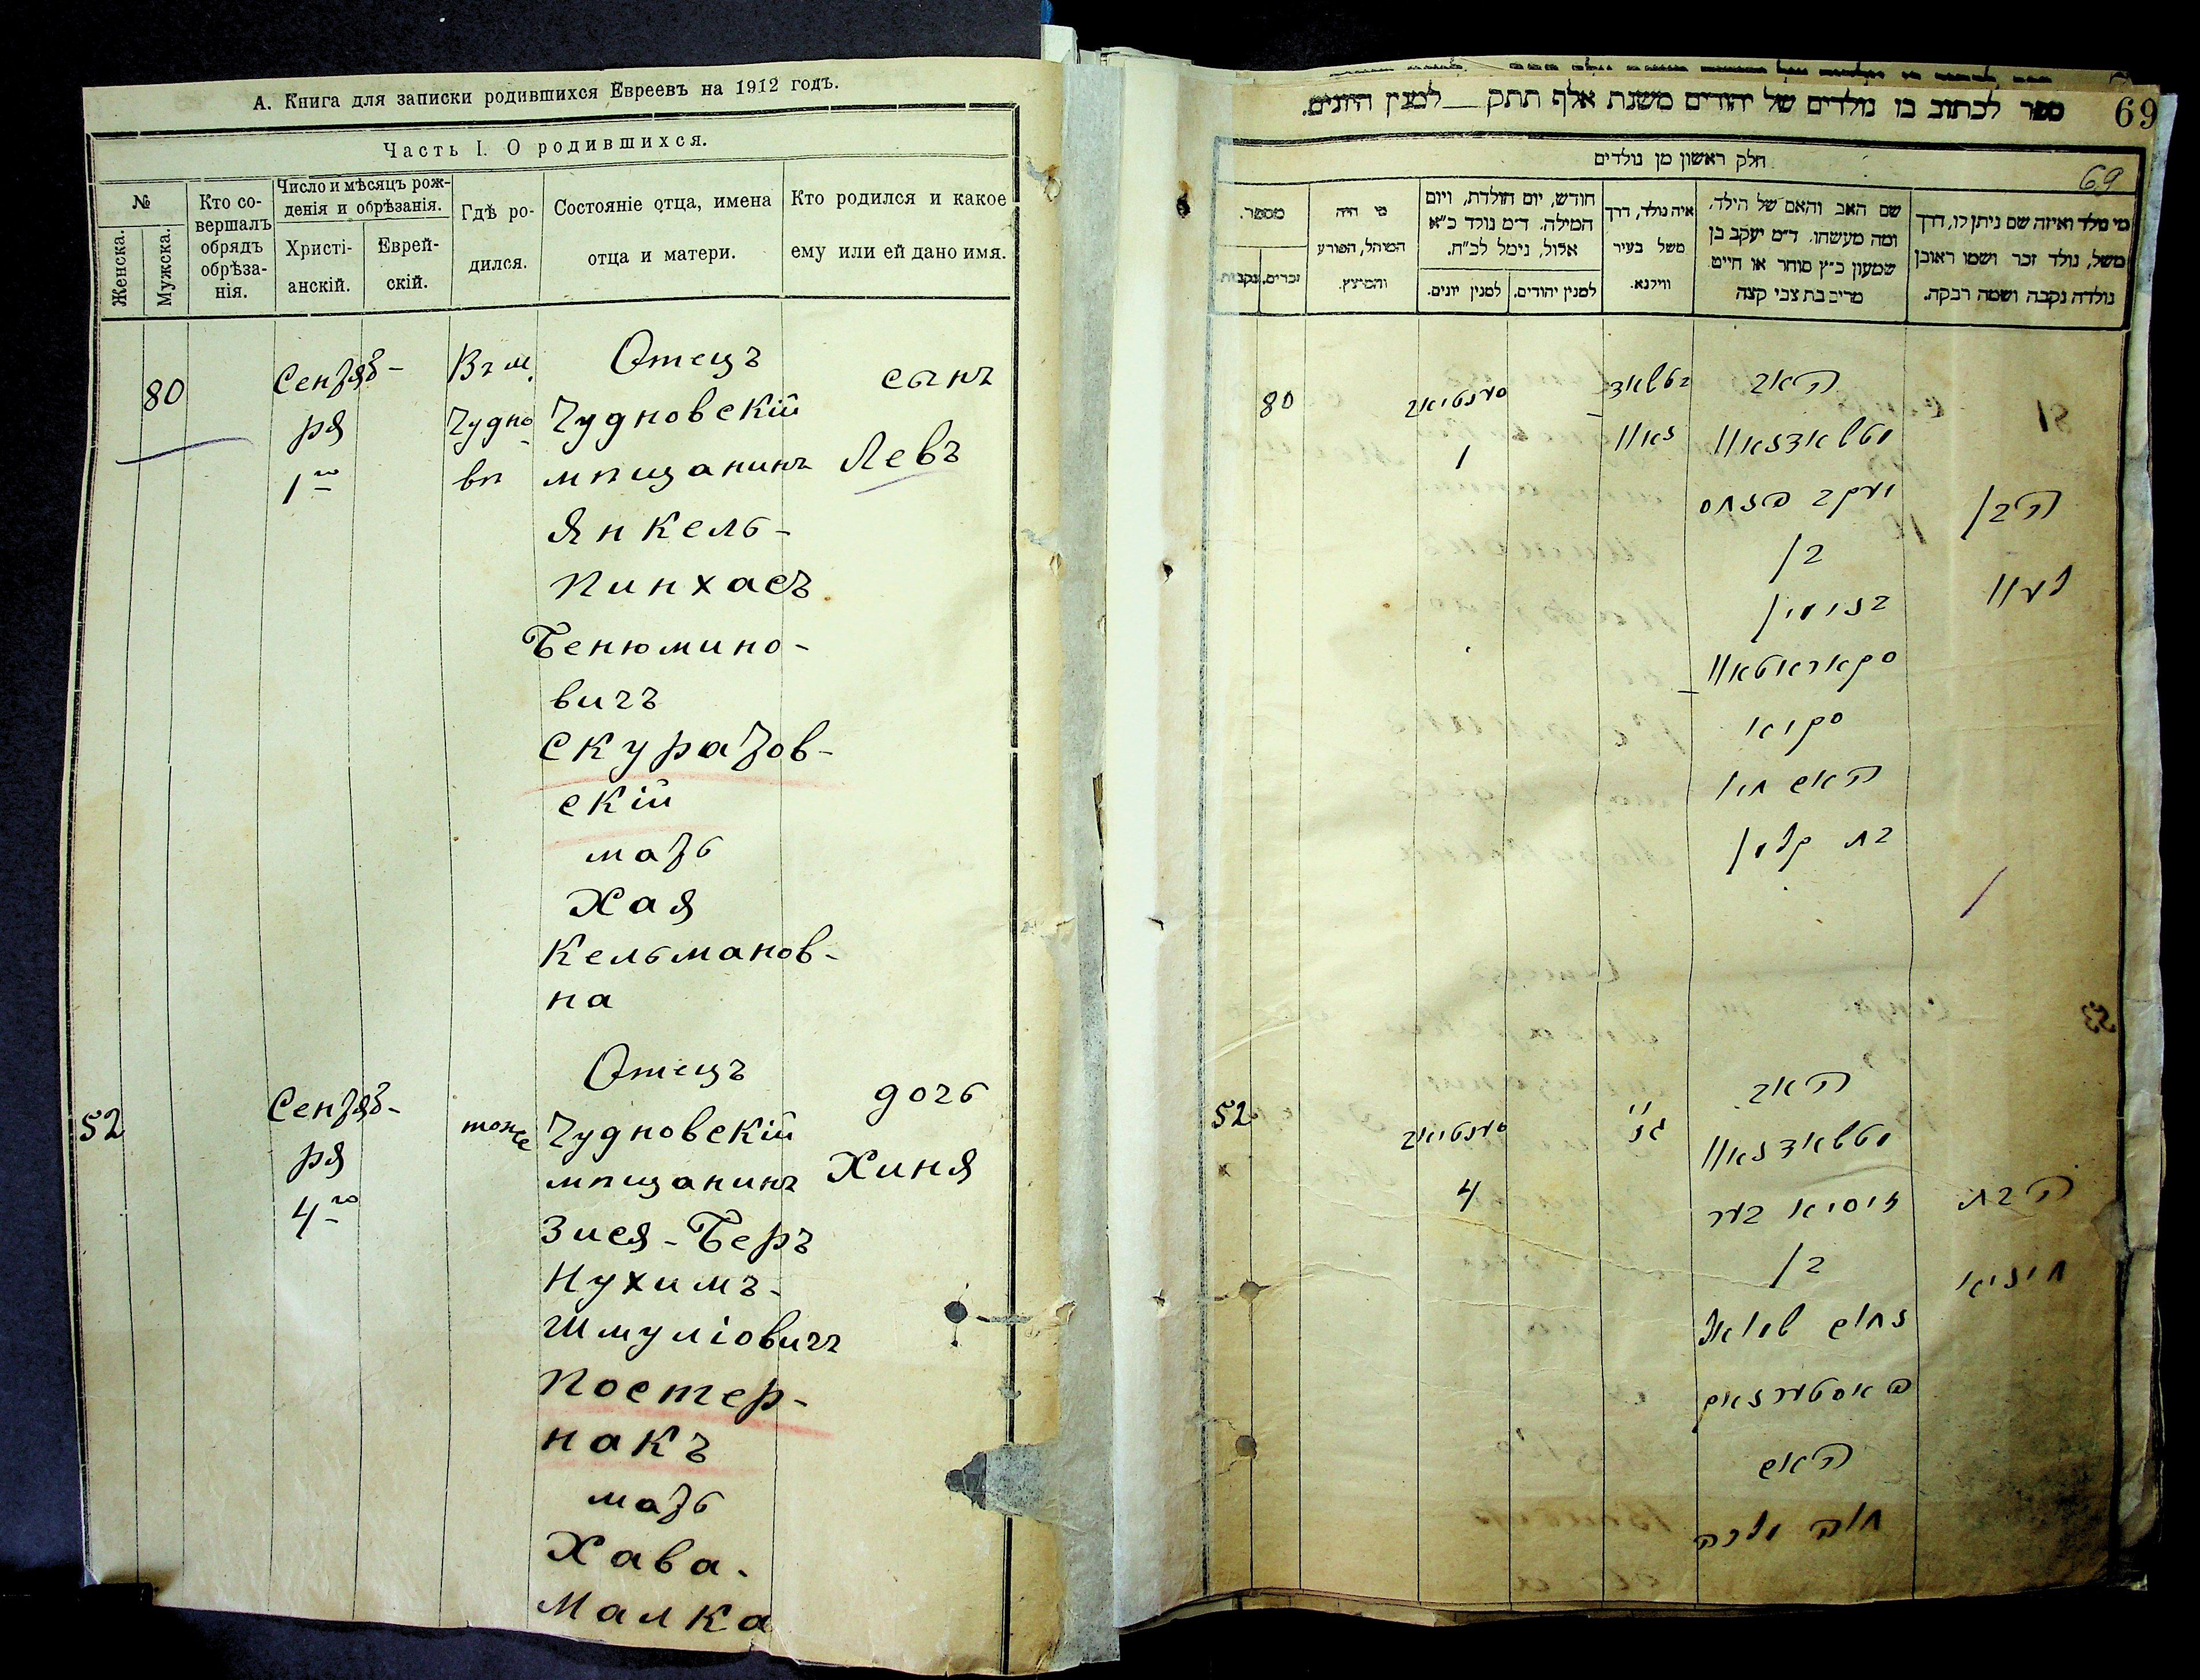 А. Книга для записки родившихся Евреевъ на 1912 годъ.
Часть I. О родившихся.
№
Женска.
Мужска.
Кто со-
вершалъ
обрядъ
обрѣза-
нія.
Число и мѣсяцъ рож-
денія и обрѣзанія.
Христі-
анскій.
Еврей-
скій.
Гдѣ ро-
дился.
Состояніе отца, имена
отца и матери.
Кто родился и какое
ему или ей дано имя.
80
Сентяб-
ря
1го
Въ м.
Чудно-
вѣ
Отецъ
Чудновскій
мѣщанинъ
Янкель-
Пинхасъ
Бенюмино-
вичъ
Скуратов-
скій
мать
Хая
Кельманов-
на
сынъ
Левъ
52
Сентяб-
ря
4го
тоже
Отецъ
Чудновскій
мѣщанинъ
Зися-Беръ
Нухимъ-
Шмуліовичъ
Постер-
накъ
мать
Хава-
Малка
дочь
Хиня
ספר לכתוב בו נולדים של יהודים משנת אלף תתק למנין היונים.
69
חלק ראשון מן נולדים
69
מי נולד ואיזה שם ניתן לו, דרך
משל, נולד זכר ושמו ראובן
נולדה נקבה ושמה רבקה.
שם האב והאם של הילד,
ומה מעשהו. ד״מ יעקב בן
שמעון כ״ץ סוחר או חייט
מריב בת צבי קצה
איה נולד, דרך
משל בעיר
ווילנא.
חודש, יום הולדת, ויום
המילה. ד״מ נולד כ״א
אלול, נימל לכ״ח.
למנין יהודים.
למנין יונים.
מי היה
המוהל, הפורע
והמוצץ.
מספר.
זכרים.
נקבות.
80
1
האב
יעקב פנחס
בן
בנימין
האם חי׳
בת קלמן
הבן
לעוו
52
4
האב
זיסיא בער
בן
נחום שמואל
פאסטערנאק
האם
חוה מלכה
הבת
חיניא